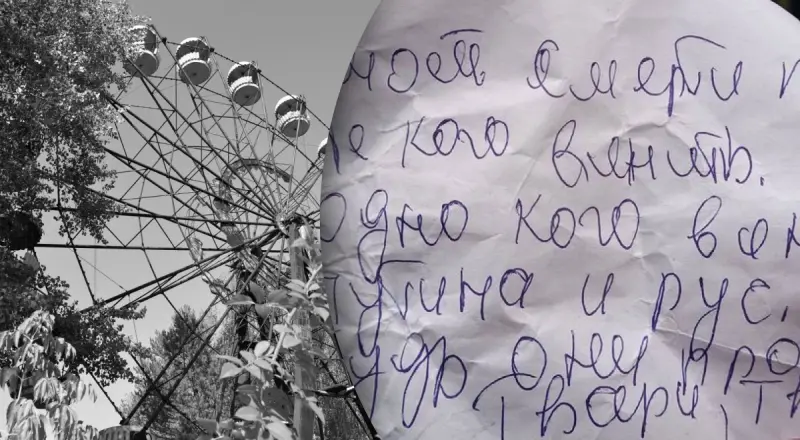 моей смерти
не кого винить.
Одно кого
Путина и рус.
они
Твари